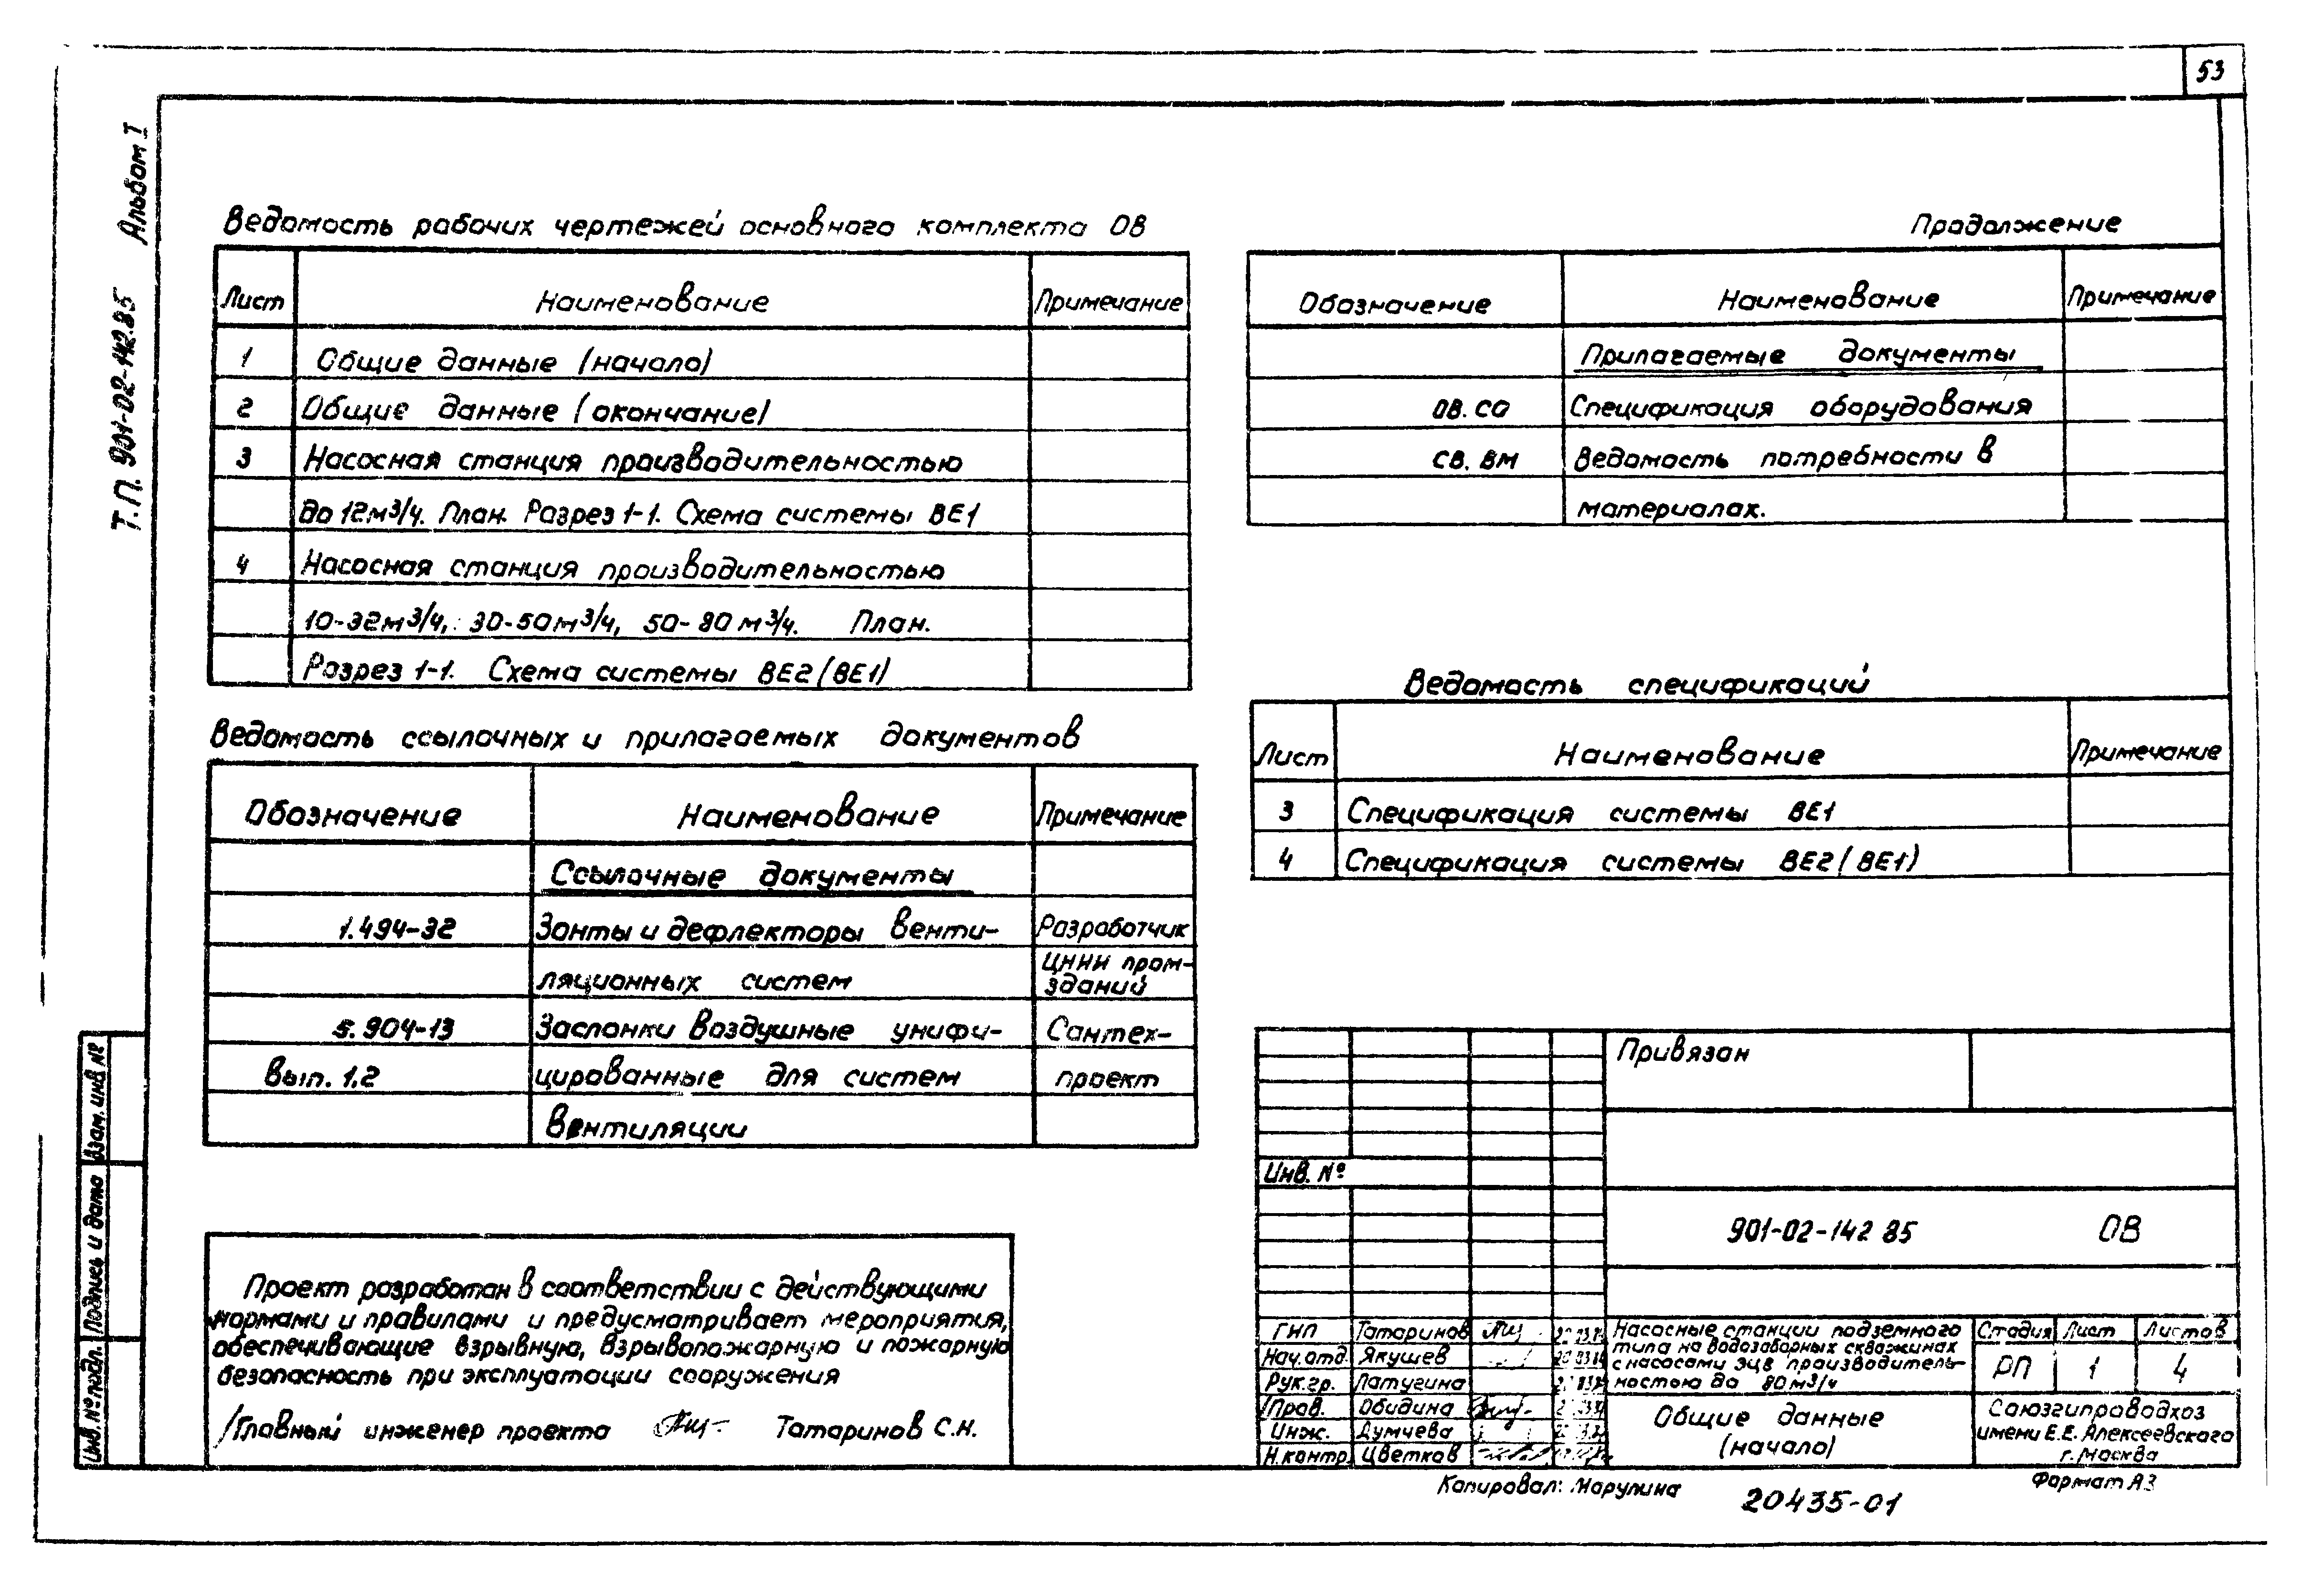 53
Т.П. 901-02-142.85 Альбом I
Ведомость рабочих чертежей основного комплекта ОВ
Лист Наименование Примечание
1 Общие данные (начало)
2 Общие данные (окончание)
3 Насосная станция производительностью
до 12м³/ч. План. Разрез 1-1. Схема системы ВЕ1
4 Насосная станция производительностью
10-32м³/ч, 30-50м³/ч, 50-80м³/ч. План.
Разрез 1-1. Схема системы ВЕ2(ВЕ1)
Ведомость ссылочных и прилагаемых документов
Обозначение Наименование Примечание
Ссылочные документы
1.494-32 Зонты и дефлекторы венти- Разработчик
ляционных систем ЦНИИ пром-
зданий
5.904-13 Заслонки воздушные унифи- Сантех-
Вып. 1.2 цированные для систем проект
вентиляции
Проект разработан в соответствии с действующими
нормами и правилами и предусматривает мероприятия,
обеспечивающие взрывную, взрывопожарную и пожарную
безопасность при эксплуатации сооружения
/Главный инженер проекта Татаринов С.Н.
Продолжение
Обозначение Наименование Примечание
Прилагаемые документы
ОВ.СО Спецификация оборудования
СВ.ВМ Ведомость потребности в
материалах.
Ведомость спецификаций
Лист Наименование Примечание
3 Спецификация системы ВЕ1
4 Спецификация системы ВЕ2(ВЕ1)
Привязан
Инв. №
901-02-142 85 ОВ
ГИП Татаринов
Нач.отд. Якушев
Рук.гр. Латугина
Пров. Обидина
Инж. Думчева
Н.контр. Цветков
Насосные станции подземного
типа на водозаборных скважинах
с насосами ЭЦВ производитель-
ностью до 80м³/ч
Стадия Лист Листов
РП 1 4
Общие данные
(начало)
Союзгипроводхоз
имени Е.Е. Алексеевского
г. Москва
Копировал: Марулина
20435-01
Формат А3
Инв. № подл. Подпись и дата Взам. инв №